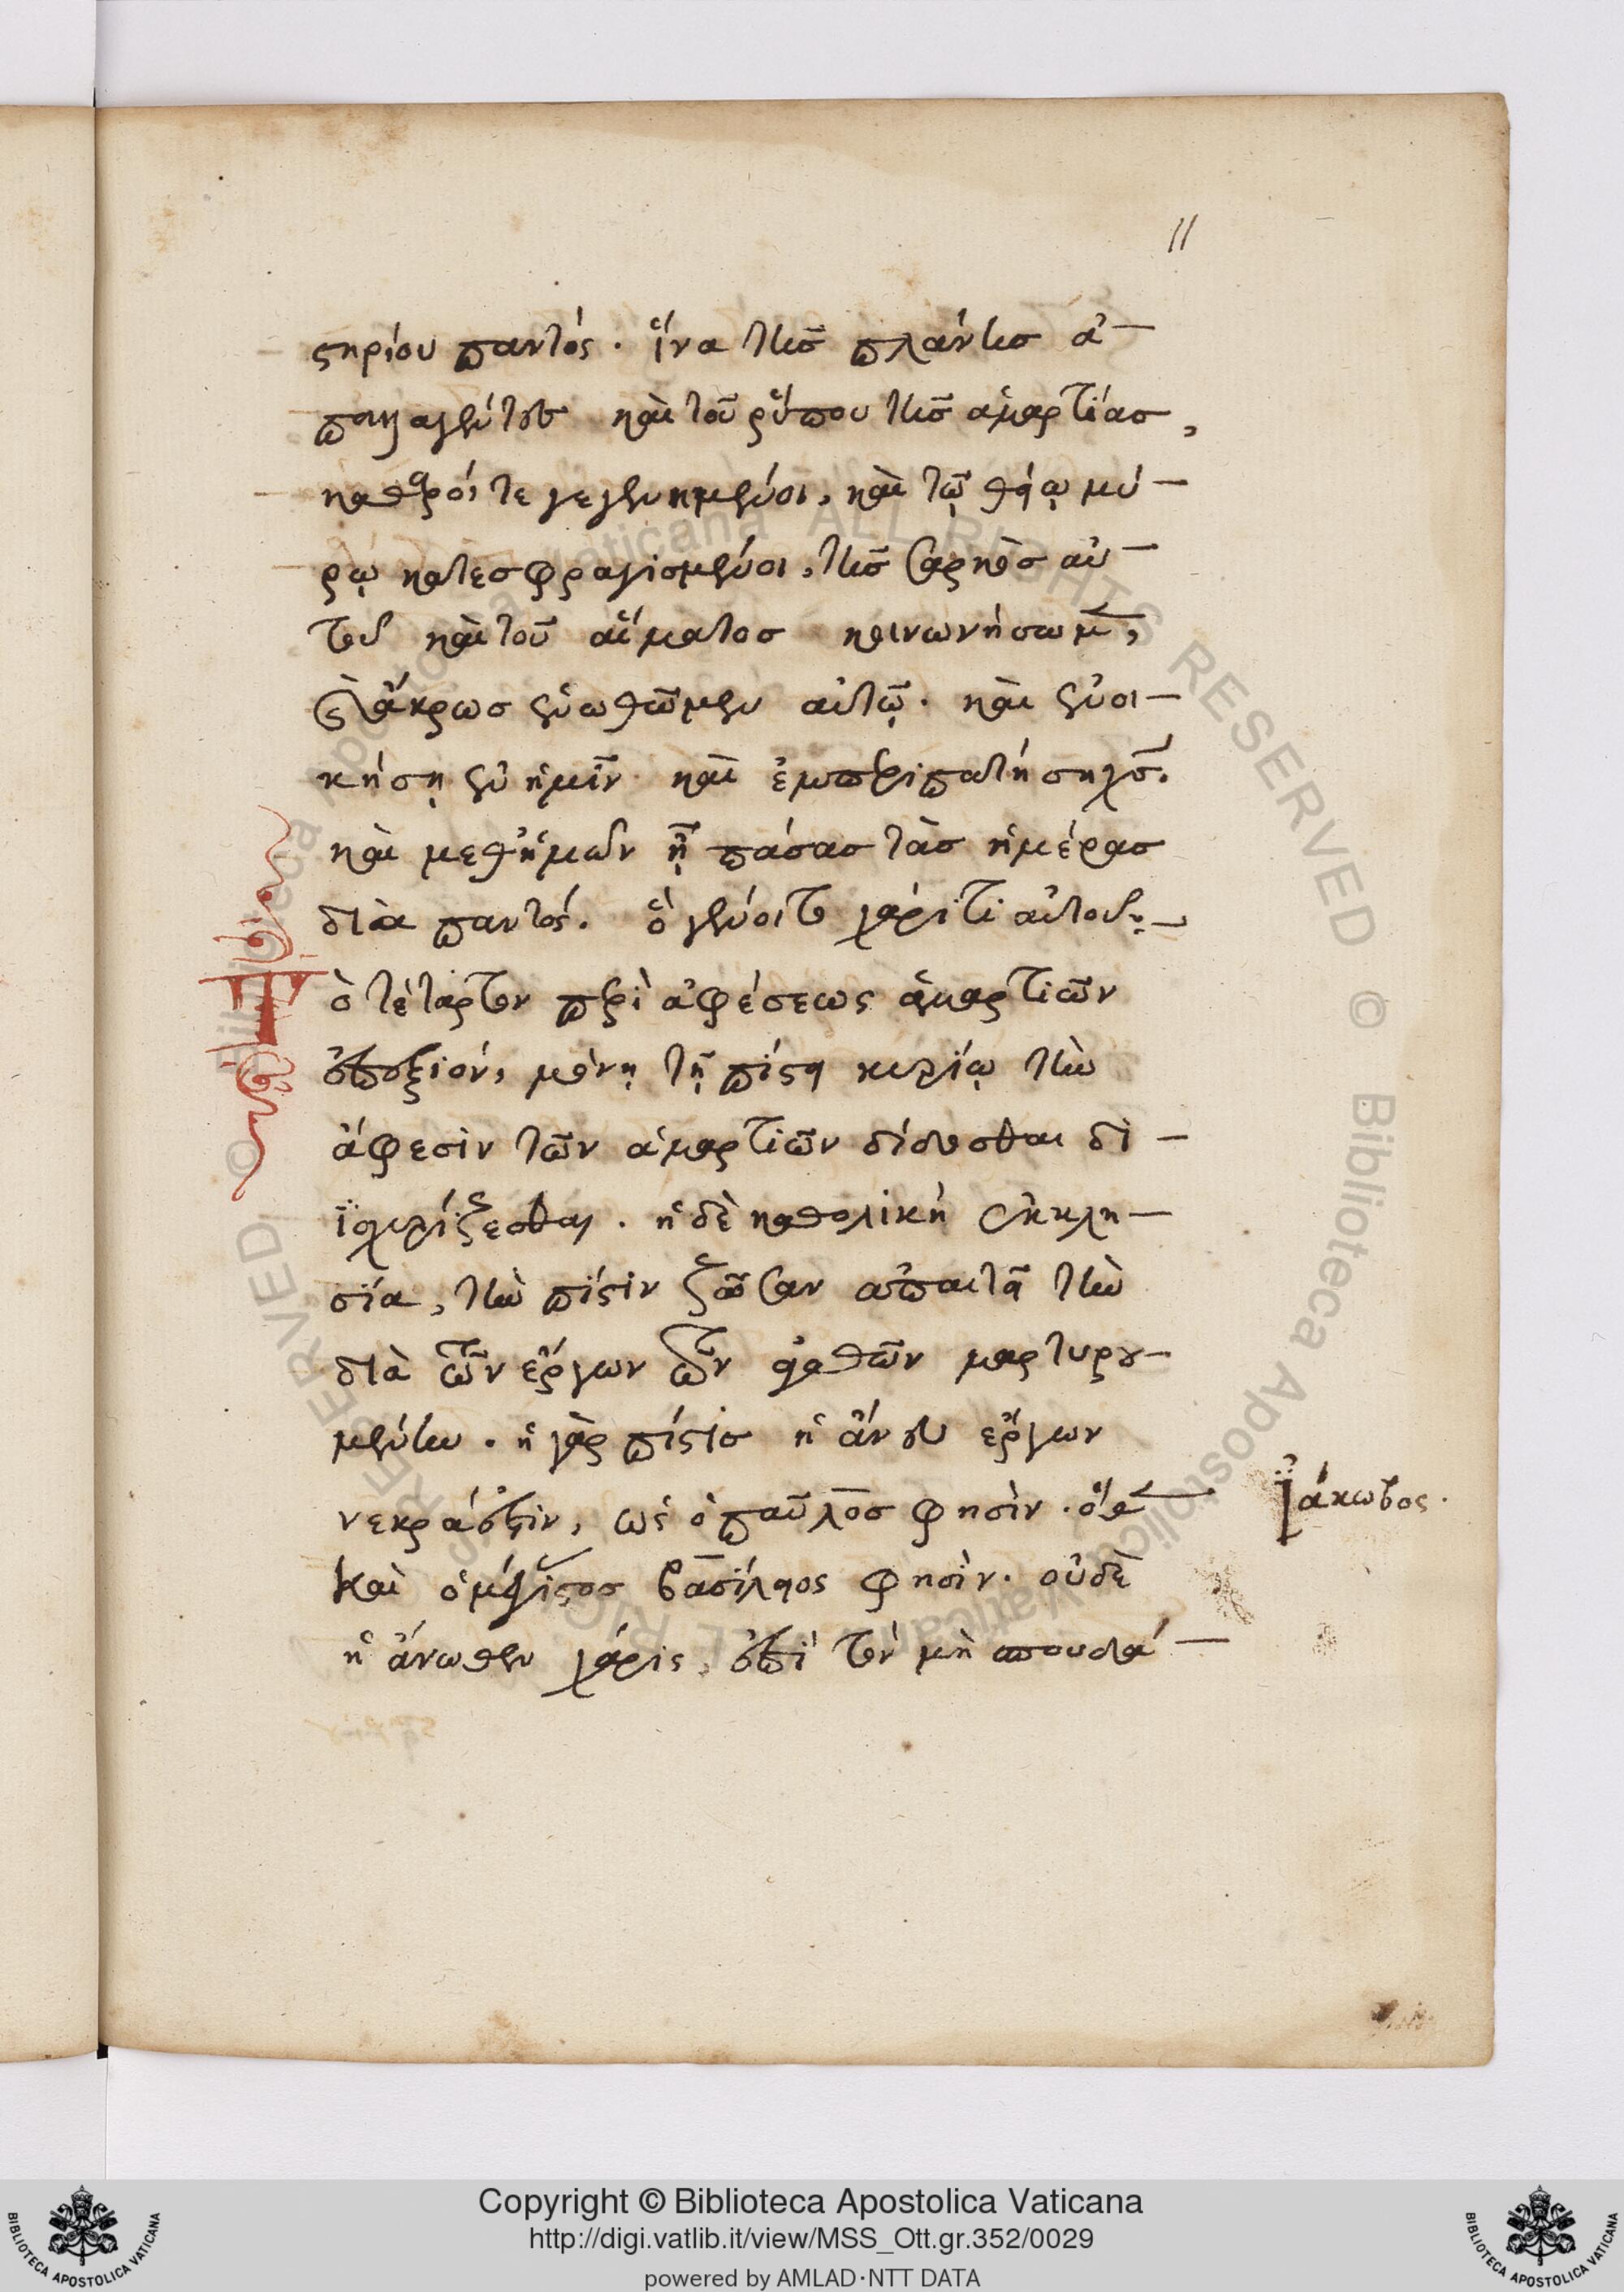 11
στηρίου παντός. ἵνα τῆς πλάνης ἀ-
παλλαγέντες καὶ τοῦ ῥύπου τῆς ἁμαρτίας,
καθαροί τε γεγενημένοι, καὶ τῷ θείῳ μύ-
ρῳ κατεσφραγισμένοι, τῆς σαρκὸς αὐ-
τοῦ καὶ τοῦ αἵματος κοινωνήσωμεν,
καὶ ἄκρως ἑνωθῶμεν αὐτῷ. καὶ ἐνοι-
κήσῃ ἐν ἡμῖν καὶ ἐμπεριπατήσῃ χς.
καὶ μεθ' ἡμῶν ᾖ πάσας τὰς ἡμέρας
διὰ παντός. ὃ γένοιτο χάριτι αὐτοῦ:-
Τὸ τέταρτον περὶ ἀφέσεως ἁμαρτιῶν
ἐστιν, μόνῃ τῇ πίστει κυρίῳ τὴν
ἄφεσιν τῶν ἁμαρτιῶν δίδοσθαι δι-
ϊσχυρίζεσθαι. ἡ δὲ καθολικὴ ἐκκλη-
σία, τὴν πίστιν ζῶσαν ἀπαιτεῖ τὴν
διὰ τῶν ἔργων τῶν ἀγαθῶν μαρτυρου-
μένην. ἡ γὰρ πίστις ἡ ἄνευ ἔργων
νεκρά ἐστιν, ὡς ὁ παῦλος φησίν. ὅθεν
Καὶ ὁ μέγιστος βασίλειος φησίν. οὐδὲ
ἡ ἄνωθεν χάρις, ἐπὶ τὸν μὴ σπουδά-
Ἰάκωβος.
Copyright © Biblioteca Apostolica Vaticana
http://digi.vatlib.it/view/MSS_Ott.gr.352/0029
powered by AMLAD·NTT DATA